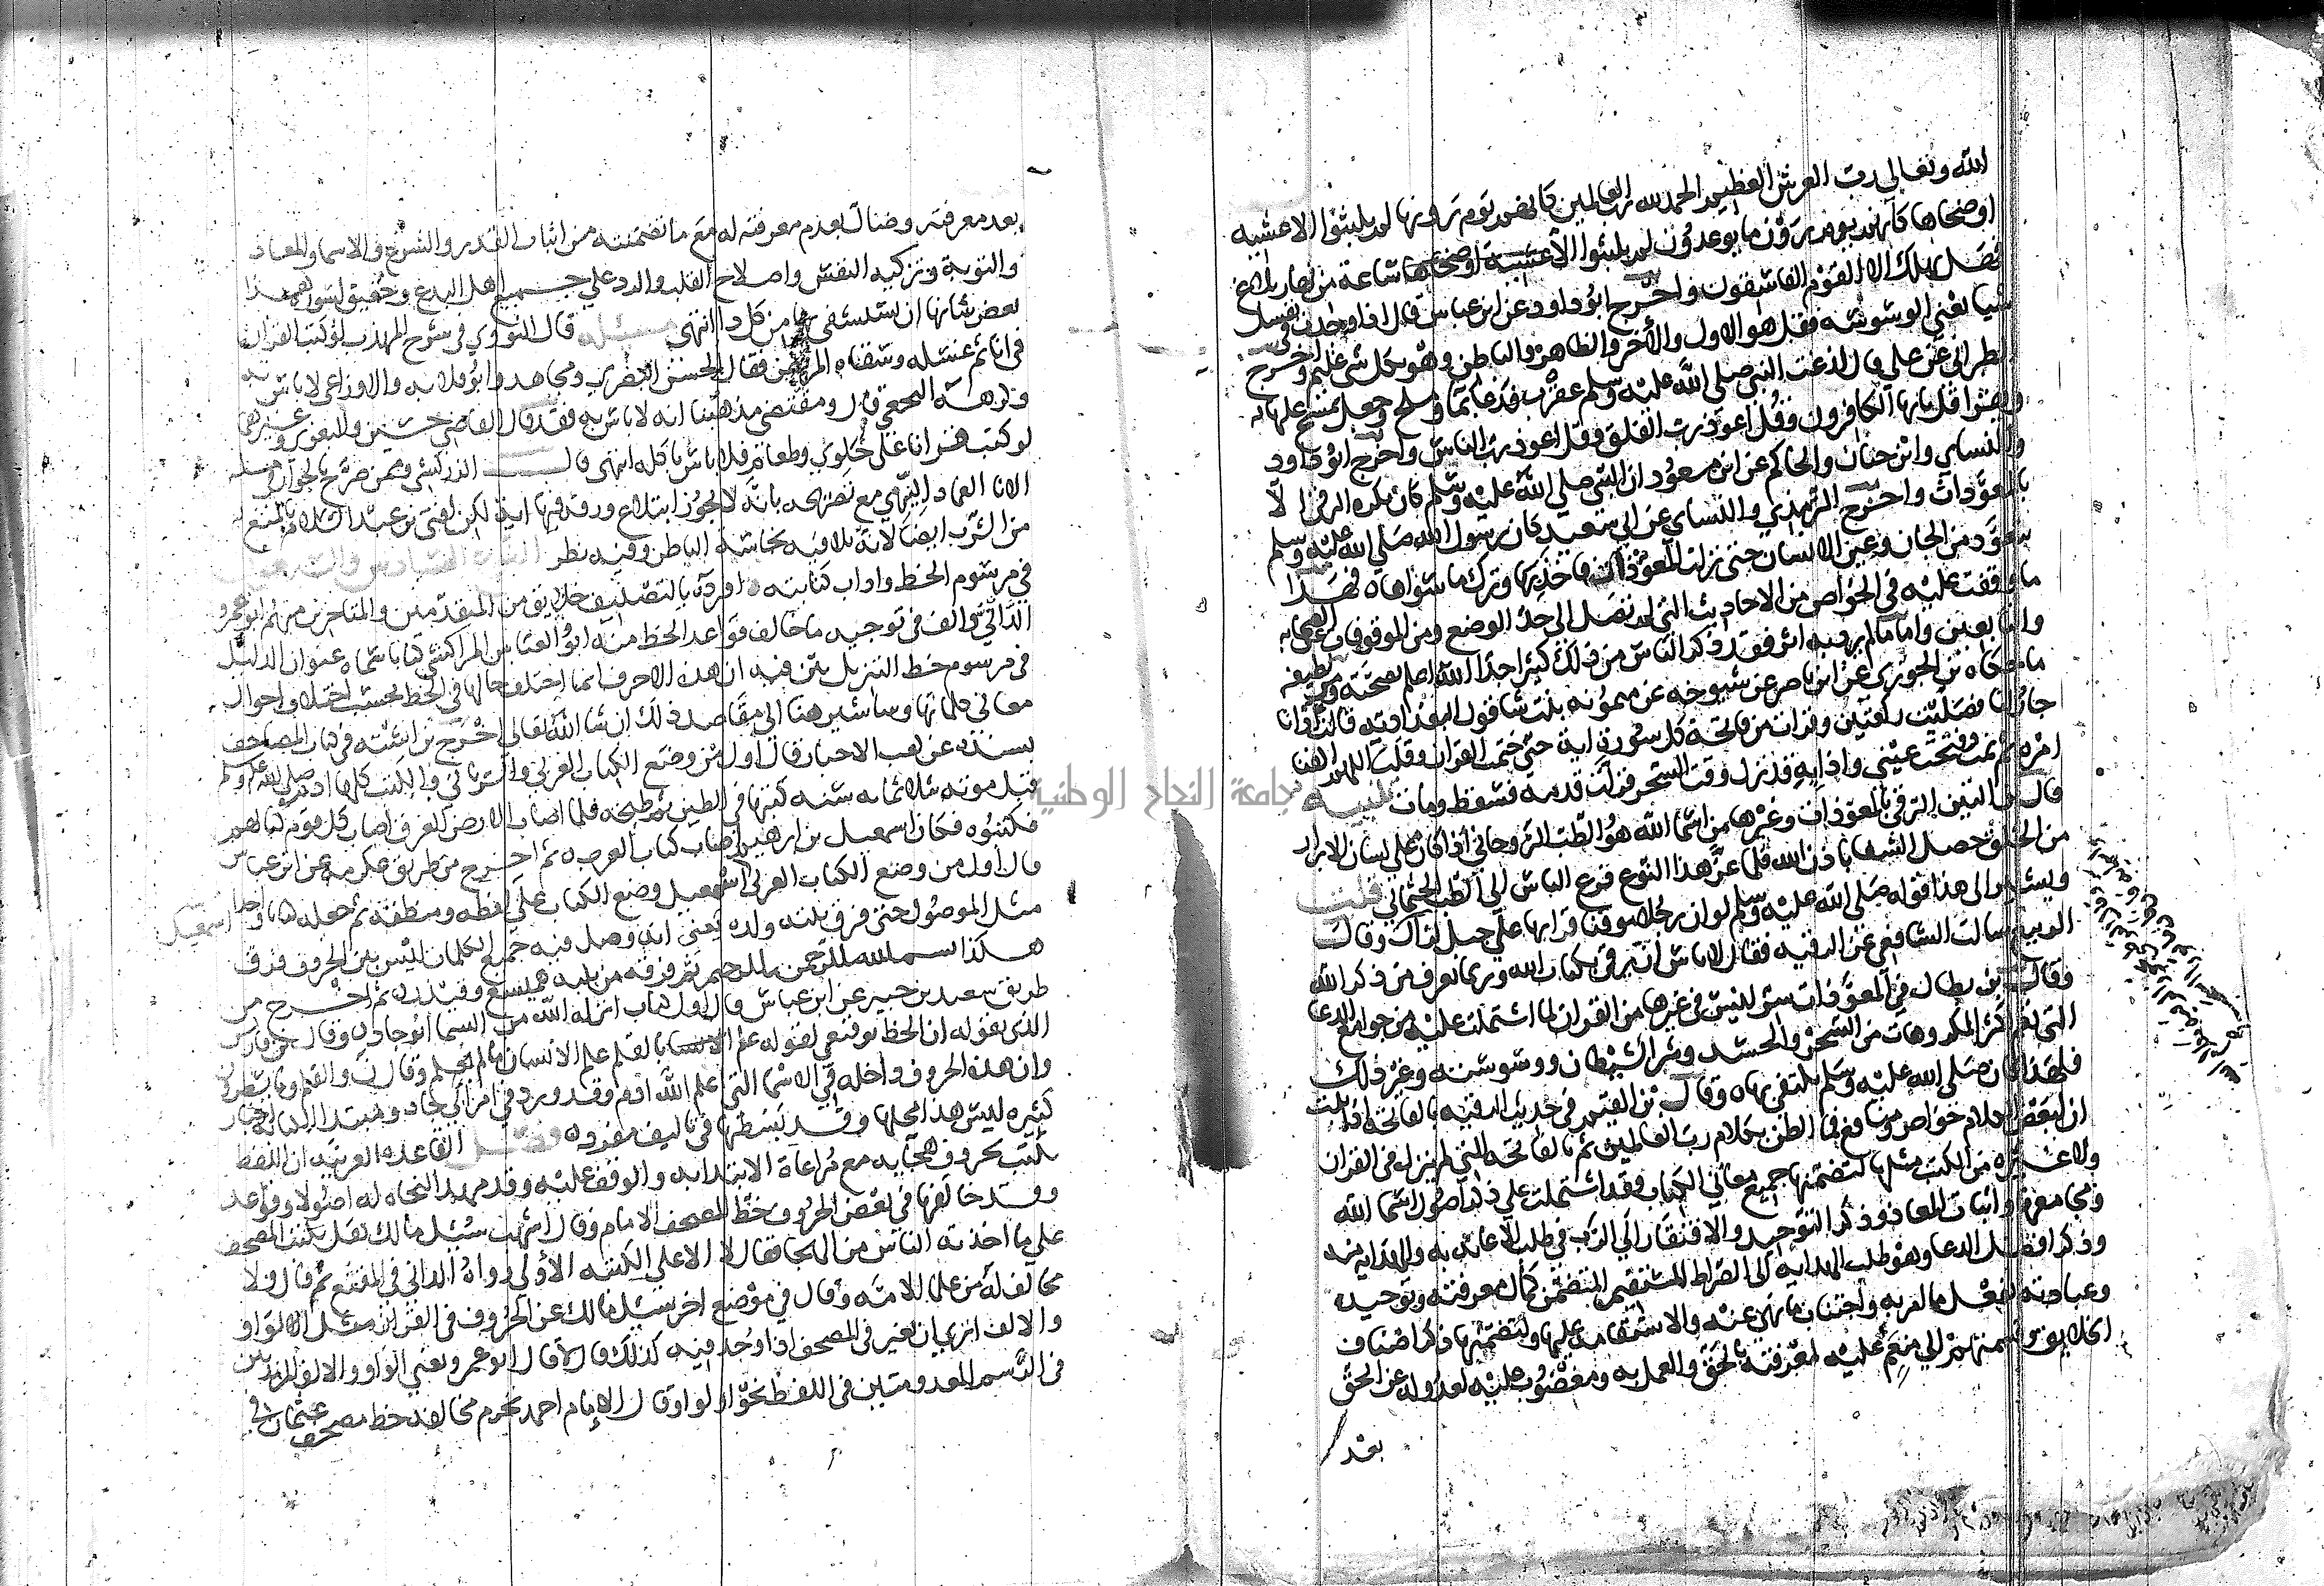 الله وتعالى رب العرش العظيم الحمد لله رب العالمين كانهم يوم يرونها لم يلبثوا الا عشية
او ضحاها كانهم يوم يرون ما يوعدون لم يلبثوا الا عشية او ضحاها ساعة من نهار بلاغ
فهل يهلك الا القوم الفاسقون واخرج ابو داود عن ابن عباس قال اذا وجدت في نفسك
شيا يعني الوسوسه فقل هو الاول والاخر والظاهر والباطن وهو بكل شى عليم واخرج
الطبراني عن علي قال لدغت النبي صلى الله عليه وسلم عقرب فدعا بما وملح وجعل يمسح عليها
ويقرا قل يايها الكافرون وقل اعوذ برب الفلق وقل اعوذ برب الناس واخرج ابو داود
والنساي وابن حبان والحاكم عن ابن مسعود ان النبي صلي الله عليه وسلم كان يكره الرقي الا
بالمعوذات واخرج الترمذي والنساي عن ابي سعيد كان رسول الله صلي الله عليه وسلم
يتعوذ من الجان وعين الانسان حتى نزلت المعوذات فاخذ بها وترك ما سواها فهذا
ما وقفت عليه في الخواص من الاحاديث التي لم تصل الى حد الوضع ومن الموقوفات عن الصحابه
والتابعين واما ما لم يرد به اثر فقد ذكر الناس من ذلك كثيرا جدا الله اعلم بصحته ومن لطيفه
ما حكاه بن الجوزي عن ابن ناصر عن شيوخه عن ميمونه بنت شاقول البغداديه قالت اذانا
جار لنا فصليت ركعتين وقرات من فاتحة كل سورة اية حتى ختمت القران وقلت اللهم اكفنا
امره ثم نمت وفتحت عيني واذا به قد نزل وقت السحر فزلت قدمه فسقط ومات تنبيه
قال بن التين الرقي بالمعوذات وغيرها من اسما الله هو الطب الروحاني اذا كان على لسان الابرار
من الخلق حصل الشفا باذن الله فلما عز هذا النوع فزع الناس الى الطب الجثماني قلت
ويشير الى هذا قوله صلى الله عليه وسلم لو ان رجلا موقنا قرا بها على جبل لزال وقال
الربيع سالت الشافعي عن الرقيه فقال لا باس ان يرقى بكتاب الله وبما يعرف من ذكر الله
وقال بن بطال في المعوذات سر ليس في غيرها من القران لما اشتملت عليه من جوامع الدعا
التي تعم اكثر المكروهات من السحر والحسد وشر الشيطان ووسوسته وغير ذلك
فلهذا كان صلى الله عليه وسلم يكتفي بها وقال بن القيم في حديث الرقيه بالفاتحة اذا ثبت
ان لبعض الكلام خواص ومنافع فما الظن بكلام رب العالمين ثم بالفاتحه التي لم ينزل في القران
ولا غيره من الكتب مثلها لتضمنها جميع معاني الكتاب وقد اشتملت علي ذكر اصول اسما الله
ومجامعها واثبات المعاد وذكر التوحيد والافتقار الى الرب في طلب الاعانه به والهدايه منه
وذكر افضل الدعا وهو طلب الهدايه الى الصراط المستقيم المتضمن كمال معرفته وتوحيده
وعبادته بفعل ما امر به واجتناب ما نهى عنه والاستقامه عليها ولتضمنها ذكر اصناف
الخلايق وقسمتهم الي منعم عليه لمعرفته بالحق والعمل به ومغضوب عليه لعدوله عن الحق
بعد
بعد معرفته وضال بعدم معرفته له مع ما تضمنته من اثبات القدر والشرع والاسما والمعاد
والتوبة وتزكيه النفس واصلاح القلب والرد علي جميع اهل البدع وحقيق لسوره هذا
بعض شانها ان يستشفى بها من كل دا انتهى مسئله قال النووي في شرح المهذب لو كتب القران
في انا ثم غسله وسقاه المريض فقال الحسن البصري ومجاهد وابو قلابه والاوزاعى لا باس به
وكرهه النخعي قال ومقتضى مذهبنا انه لا باس به فقد قال القاضي حسين والبغوى وغيرهما
لو كتب قرانا على حلوي وطعام فلا باس باكله انتهى قال الزركشي وممن صرح بالجواز في مسله
الانا العماد النيهي مع تصريحه بانه لا يجوز ابتلاع ورقة فيها اية لكن افتى بن عبد السلام بالمنع
من الشرب ايضا لانه يلاقيه نجاسة الباطن وفيه نظر النوع السادس والسبعون
في مرسوم الخط واداب كتابته افرده بالتصنيف خلايق من المتقدمين والمتاخرين منهم ابو عمرو
الداني والف في توجيه ما خالف قواعد الخط منه ابو العباس المراكشي كتابا سماه عنوان الدليل
في مرسوم خط التنزيل بين فيه ان هذه الاحرف انما اختلف حالها في الخط بحسب اختلاف احوال
معاني كلماتها وساشير هنا الى مقاصد ذلك ان شا الله تعالى اخرج بن اشته في كتاب المصاحف
بسنده عن كعب الاحبار قال اول من وضع الكتاب العربي والسرياني والكتب كلها ادم صلى الله عليه وسلم
قبل موته بثلاثمايه سنه كتبها في الطين ثم طبخه فلما اصاب الارض الغرق اصاب كل قوم كتابهم
فكتبوه فكان اسمعيل بن ابرهيم اصاب كتاب العرب ثم اخرج من طريق عكرمه عن ابن عباس
قال اول من وضع الكتاب العربي اسمعيل وضع الكتاب على لفظه ومنطقه ثم جعله كتابا واحدا
مثل الموصول حتى فرق بينه ولده يعني انه وصل فيه جميع الكلمات ليس بين الحروف فرق
هكذا بسم الله الرحمن الرحيم ثم فرقه من بنيه هميسع وقيذر ثم اخرج من
طريق سعيد بن جبير عن ابن عباس قال اول كتاب انزله الله من السما ابو جاد وقال بن فارس
الذي نقوله ان الخط توقيفي لقوله علم بالقلم علم الانسان ما لم يعلم وقال ن والقلم وما يسطرون
وان هذه الحروف داخله في الاسما التي علم الله ادم وقد ورد في امر ابي جاد ومبتدا الكتابه اخبار
كثيره ليس هذا محلها وقد بسطتها في تاليف مفرد فصل القاعده العربيه ان اللفظ
يكتب بحروف هجايه مع مراعاة الابتدا به والوقف عليه وقد مهد النحاه له اصولا وقواعد
وقد خالفها في بعض الحروف خط المصحف الامام وقال اشهب سئل مالك هل يكتب المصحف
على ما احدثه الناس من الهجا فقال لا الا على الكتبه الاولى رواه الداني في المقنع ثم قال ولا
مخالف له من علما الامة وقال في موضع اخر سئل مالك عن الحروف في القران مثل الواو
والالف اترى ان تغير في المصحف اذا وجد فيه كذلك قال لا قال ابو عمرو يعني الواو والالف المزيدتين
في الرسم المعدومتين في اللفظ نحو اولوا وقال الامام احمد يحرم مخالفة خط مصحف عثمان في
جامعة النجاح الوطنية